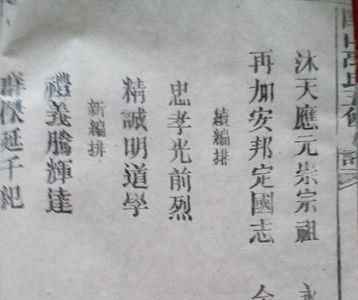 沐天應元崇宗祖 永
再加安邦定國志
續編排
忠孝光前烈
精誠明道學
新編排
禮義騰輝達
群傑延千紀